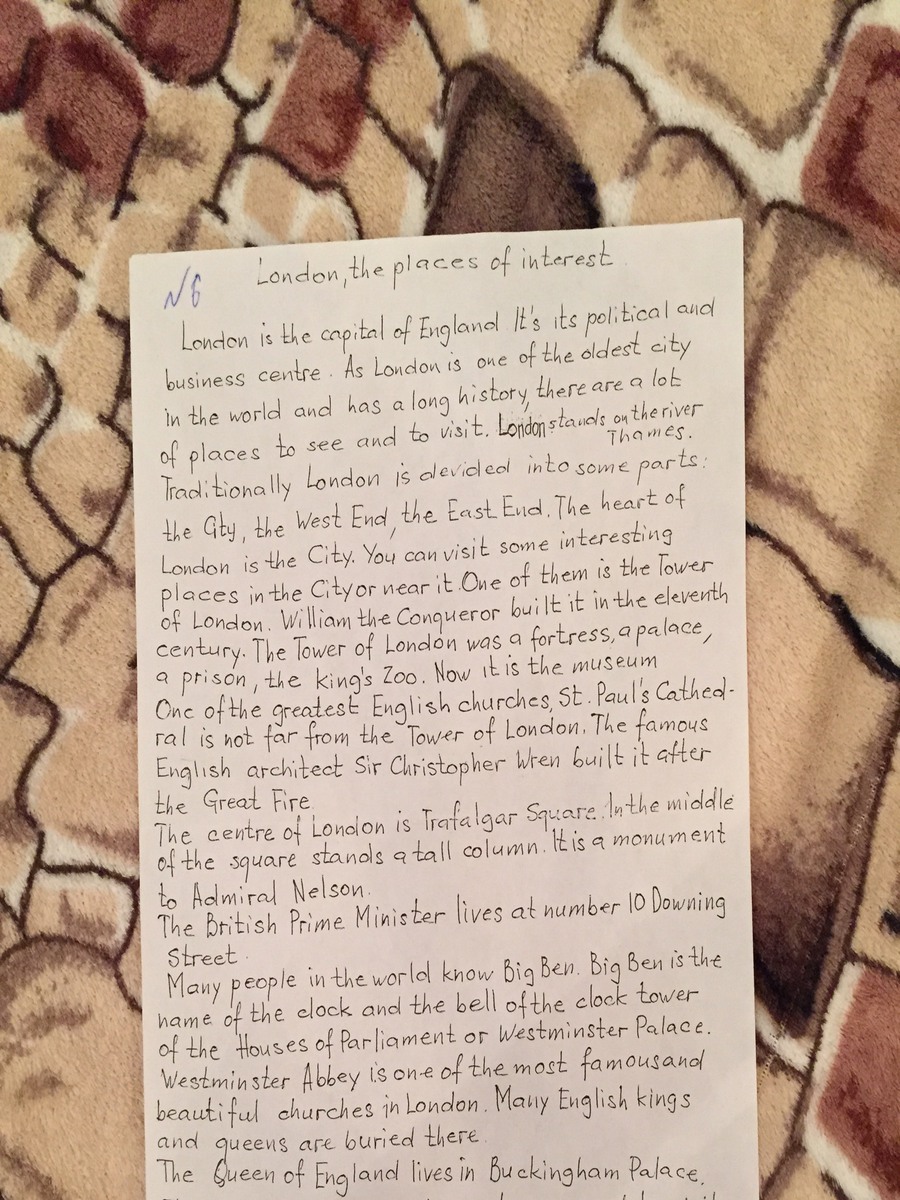 №6
London, the places of interest
London is the capital of England It's its political and
business centre. As London is one of the oldest city
in the world and has a long history, there are a lot
of places to see and to visit. London stands on the river
Thames.
Traditionally London is devided into some parts:
the City, the West End, the East End. The heart of
London is the City. You can visit some interesting
places in the City or near it. One of them is the Tower
of London. William the Conqueror built it in the eleventh
century. The Tower of London was a fortress, a palace,
a prison, the king's Zoo. Now it is the museum
One of the greatest English churches, St. Paul's Cathed-
ral is not far from the Tower of London. The famous
English architect Sir Christopher Wren built it after
the Great Fire.
The centre of London is Trafalgar Square. In the middle
of the square stands a tall column. It is a monument
to Admiral Nelson.
The British Prime Minister lives at number 10 Downing
Street.
Many people in the world know Big Ben. Big Ben is the
name of the clock and the bell of the clock tower
of the Houses of Parliament or Westminster Palace.
Westminster Abbey is one of the most famous and
beautiful churches in London. Many English kings
and queens are buried there.
The Queen of England lives in Buckingham Palace.